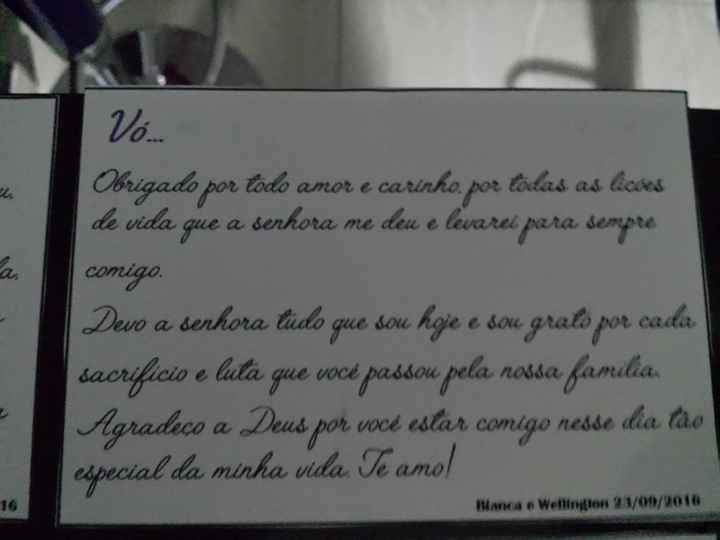 u,
la,
16
Vó...
Obrigado por todo amor e carinho, por todas as licões
de vida que a senhora me deu e levarei para sempre
comigo.
Devo a senhora tudo que sou hoje e sou grato por cada
sacrificio e luta que você passou pela nossa familia.
Agradeço a Deus por você estar comigo nesse dia tão
especial da minha vida. Te amo!
Bianca e Wellington 23/09/2016